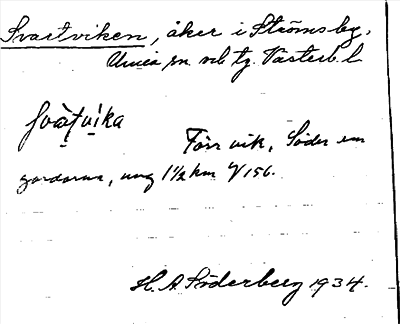 Svartviken, åker i Strömsby,
Umeå sn. tg. Västerb. l.
Förr vik, Söder om
gårdarna, ung 1½ km 4/156.
H. A. Söderberg 1934.